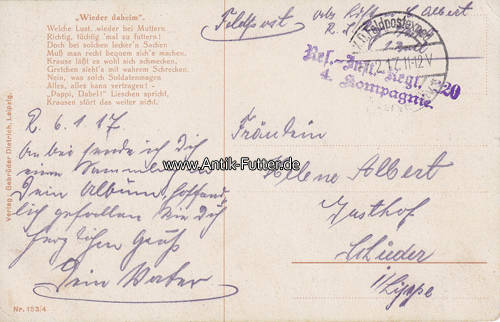 „Wieder daheim".
Welche Lust, wieder bei Muttern
Richtig, tüchtig 'mal zu futtern!
Doch bei solchen lecker'n Sachen
Muß man recht bequem sich's machen.
Krause läßt es wohl sich schmecken,
Gretchen sieht's mit wahrem Schrecken.
Nein, was solch Soldatenmagen
Alles, alles kann vertragen! –
„Pappi, Dabel!" Lieschen spricht,
Krausen stört das weiter nicht.
Feldpost
Albert
Feldpost
Res.-Inft.-Regt. 220
4. Kompagnie
R. 6.1.17
Anbei sende ich Dir
eine
Dein Album, hoffend
lich gefallen sie Dir
herzlichen Gruß
Dein Vater
www.Antik-Futter.de
Fräulein
Helene Albert
Gasthof
Schieder
i/Lippe
Verlag Gebrüder Dietrich, Leipzig.
Nr. 153/4